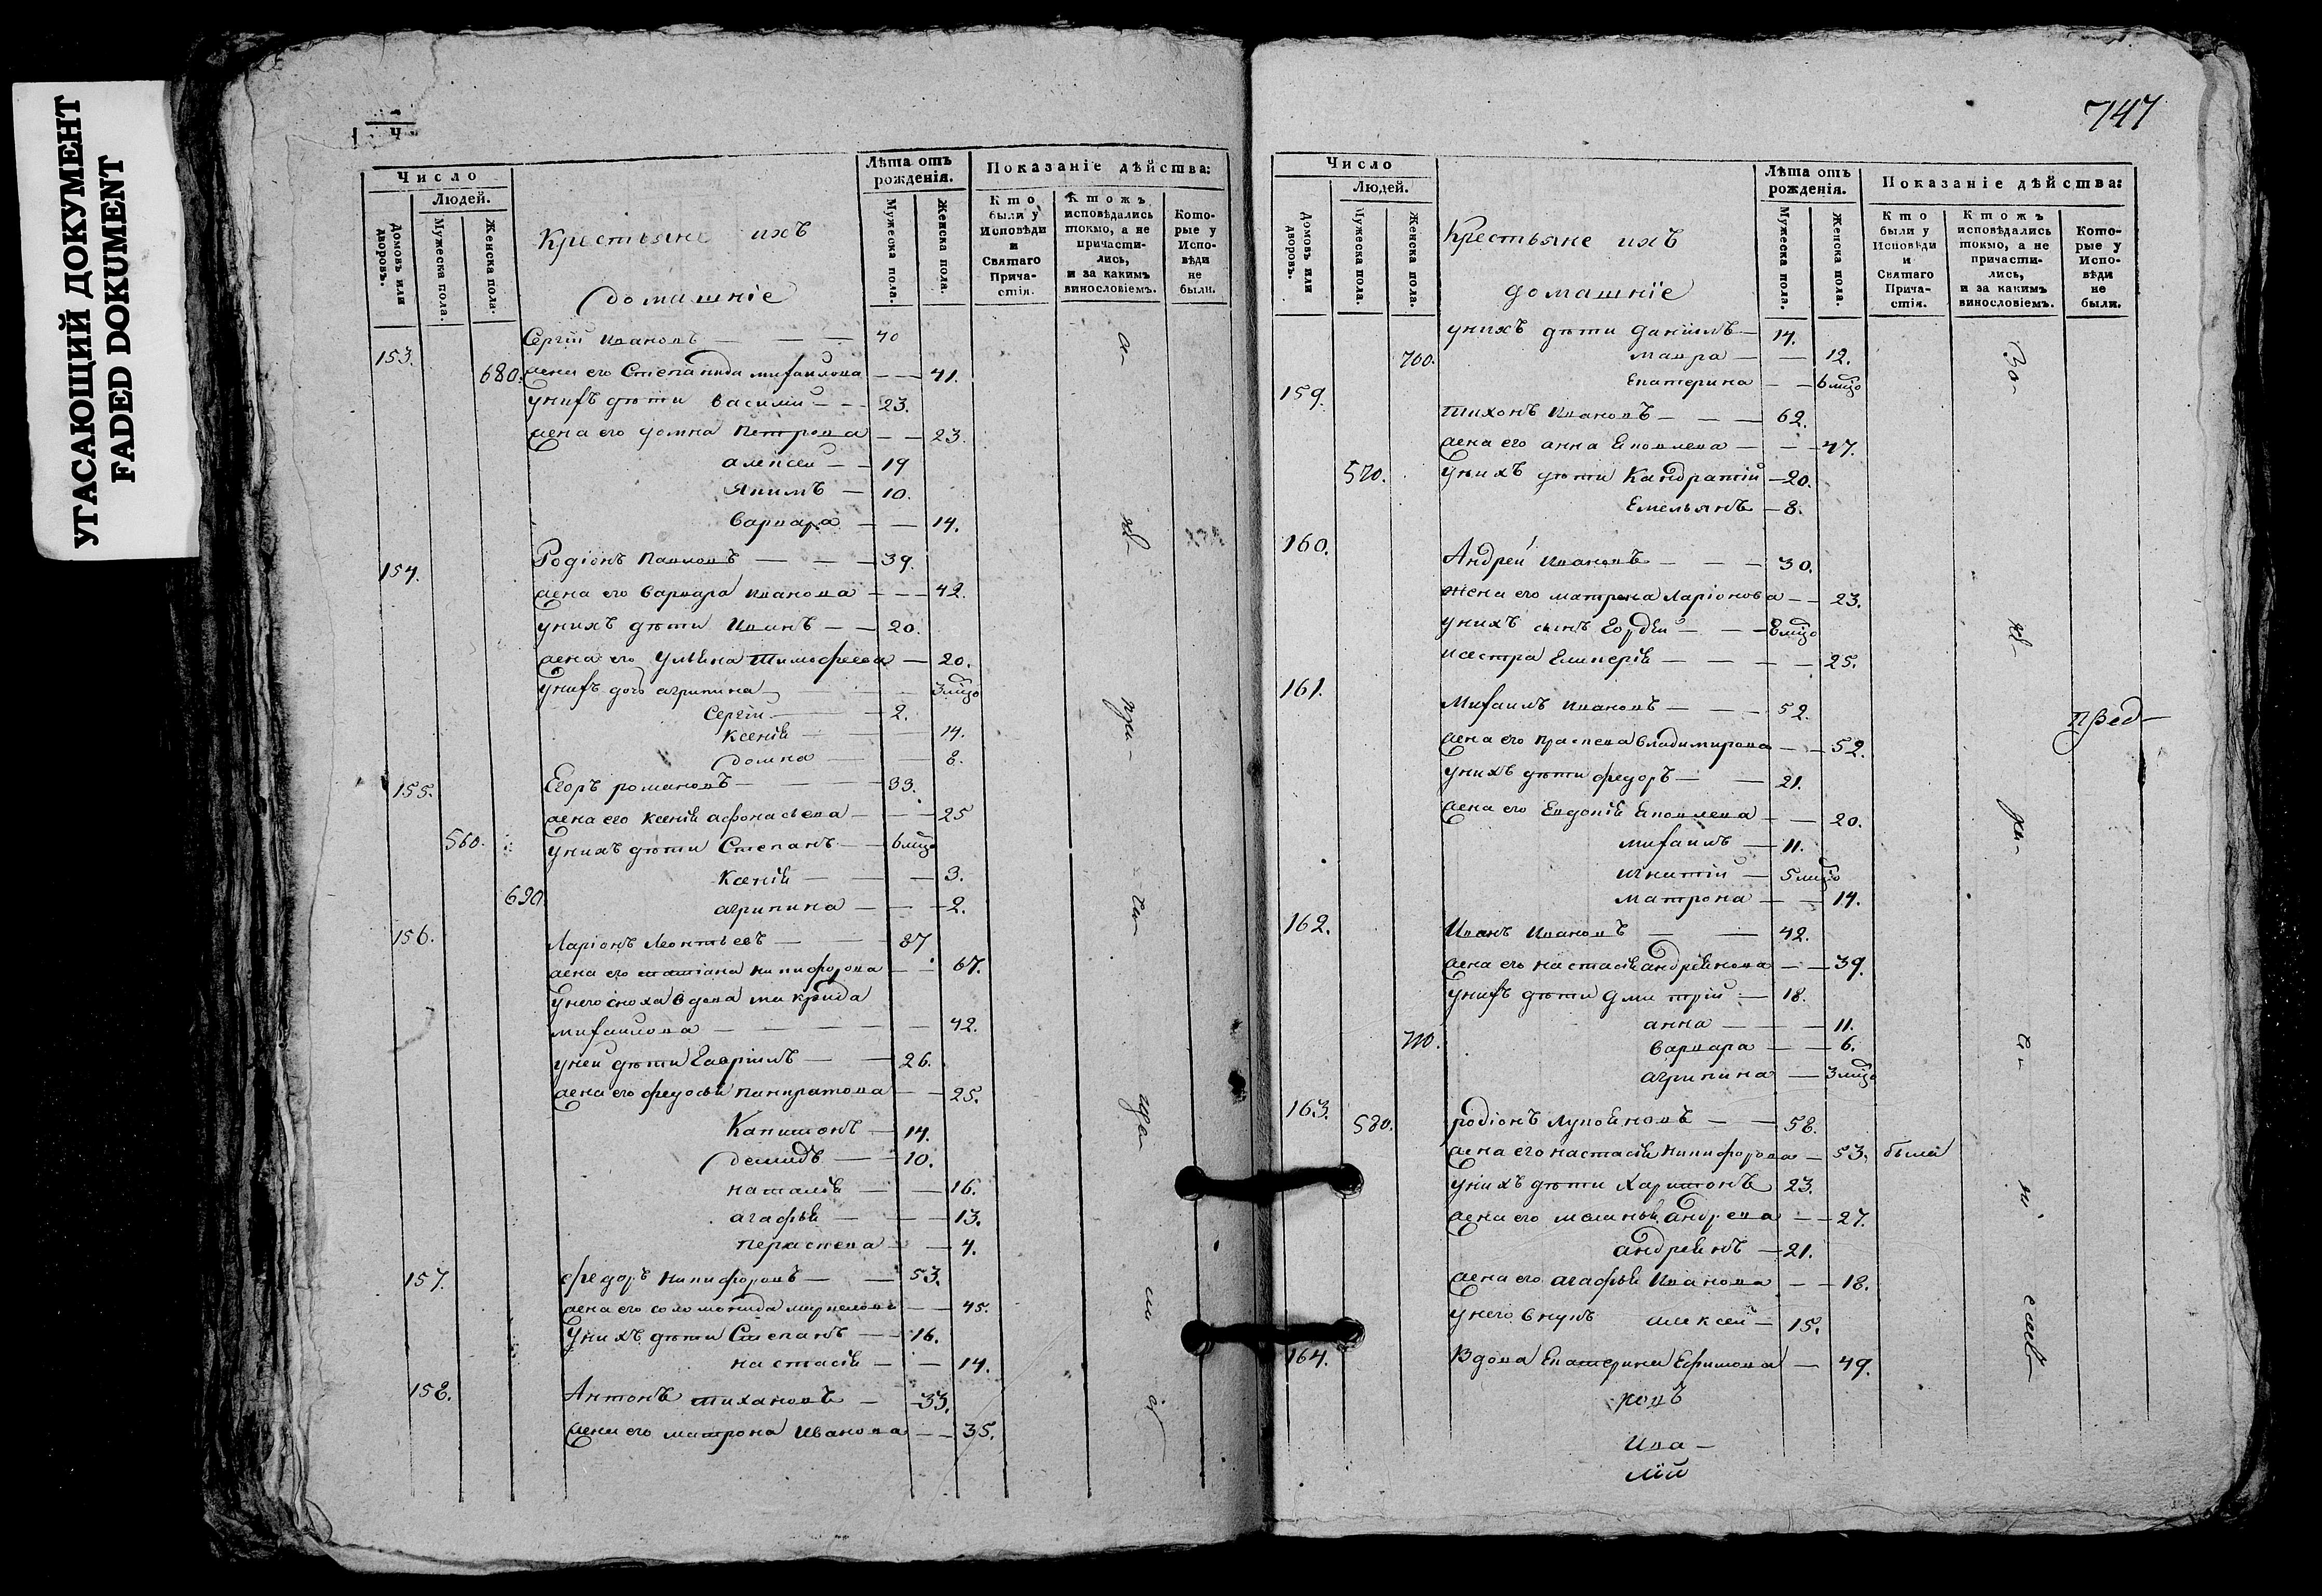 УГАСАЮЩИЙ ДОКУМЕНТ
FADED DOKUMENT
Число
Людей.
Домовъ или дворовъ.
Мужеска пола.
Женска пола.
Крестьяне ихъ
домашніе
Лѣта отъ рожденія.
Мужеска пола.
Женска пола.
Показаніе дѣйства:
Кто были у Исповѣди и Святаго Прича-стія.
Ктожъ исповѣдались токмо, а не причасти-лись, и за какимъ винословіемъ.
Кото-рые у Испо-вѣди не были.
153. Сергій Ивановъ — 40
680. жена его Степанида михайлова — 41.
унихъ дѣти василий — 23.
жена его домна Петрова — 23.
алексей — 19
якимъ — 10.
варвара — 14.
154. Родіонъ Павловъ — 39.
жена его варвара иванова — 42.
унихъ дѣти Иванъ — 20.
жена его ульяна тимофеева — 20.
унихъ дочь агрипина — 3 мцо
Сергій — 2.
ксенія — 14.
домна — 8.
155. Егоръ романовъ — 33.
жена его ксенія афонасьева — 25
560. унихъ дѣти Степанъ — 6 мцо
ксенія — 3.
690. агрипина — 2.
156. Ларіонъ Леонтьевъ — 87
жена его татіана никифорова — 67.
унего сноха вдова макрида
михайлова — 42.
уней дѣти Гавріилъ — 26.
жена его федосья панкратова — 25.
Капитонъ — 14.
демидъ — 10.
наталія — 16.
агафья — 13.
параскева — 4.
157. федоръ никифоровъ — 53.
жена его соломонида — 45.
Унихъ дѣти Степанъ — 16.
настасія — 14.
158. Антонъ тихановъ — 33.
жена его матрона Иванова — 35.
747
Число
Людей.
Домовъ или дворовъ.
Мужеска пола.
Женска пола.
Крестьяне ихъ
домашніе
Лѣта отъ рожденія.
Мужеска пола.
Женска пола.
Показаніе дѣйства:
Кто были у Исповѣди и Святаго Прича-стія.
Ктожъ исповѣдались токмо, а не причасти-лись, и за какимъ винословіемъ.
Кото-рые у Испо-вѣди не были.
унихъ дѣти даніилъ — 14.
700. мавра — 12.
Екатерина — 6 мцо
159. тихонъ Ивановъ — 62.
жена его анна Яковлева — 47.
570. унихъ дѣти Кандратій — 20.
Емельянъ — 8.
160. Андрей Ивановъ — 30.
жена его матрена Ларіонова — 23.
унихъ сынъ Гордѣй — 8 мцо
исестра Гликерія — 25.
161. Михаилъ Ивановъ — 52.
жена его праскева владимирова — 52.
унихъ дѣти федоръ — 21.
жена его Евдокія Яковлева — 20.
михаилъ — 11.
игнатій — 5 мцо
матрона — 14.
162. Иванъ Ивановъ — 42.
жена его настасія андреянова — 39.
унихъ дѣти дмитрій — 18.
анна — 11.
710. варвара — 6.
агрипина — 3 мцо
163. 580. родіонъ Лукояновъ — 58.
жена его настасія никифорова — 53. были
унихъ дѣти Харитонъ 23.
жена его маланья андреева — 27.
андреянъ — 21.
жена его агафья Иванова — 18.
унего внукъ алексей — 15.
164. Вдова Екатерина Ефимова — 49.